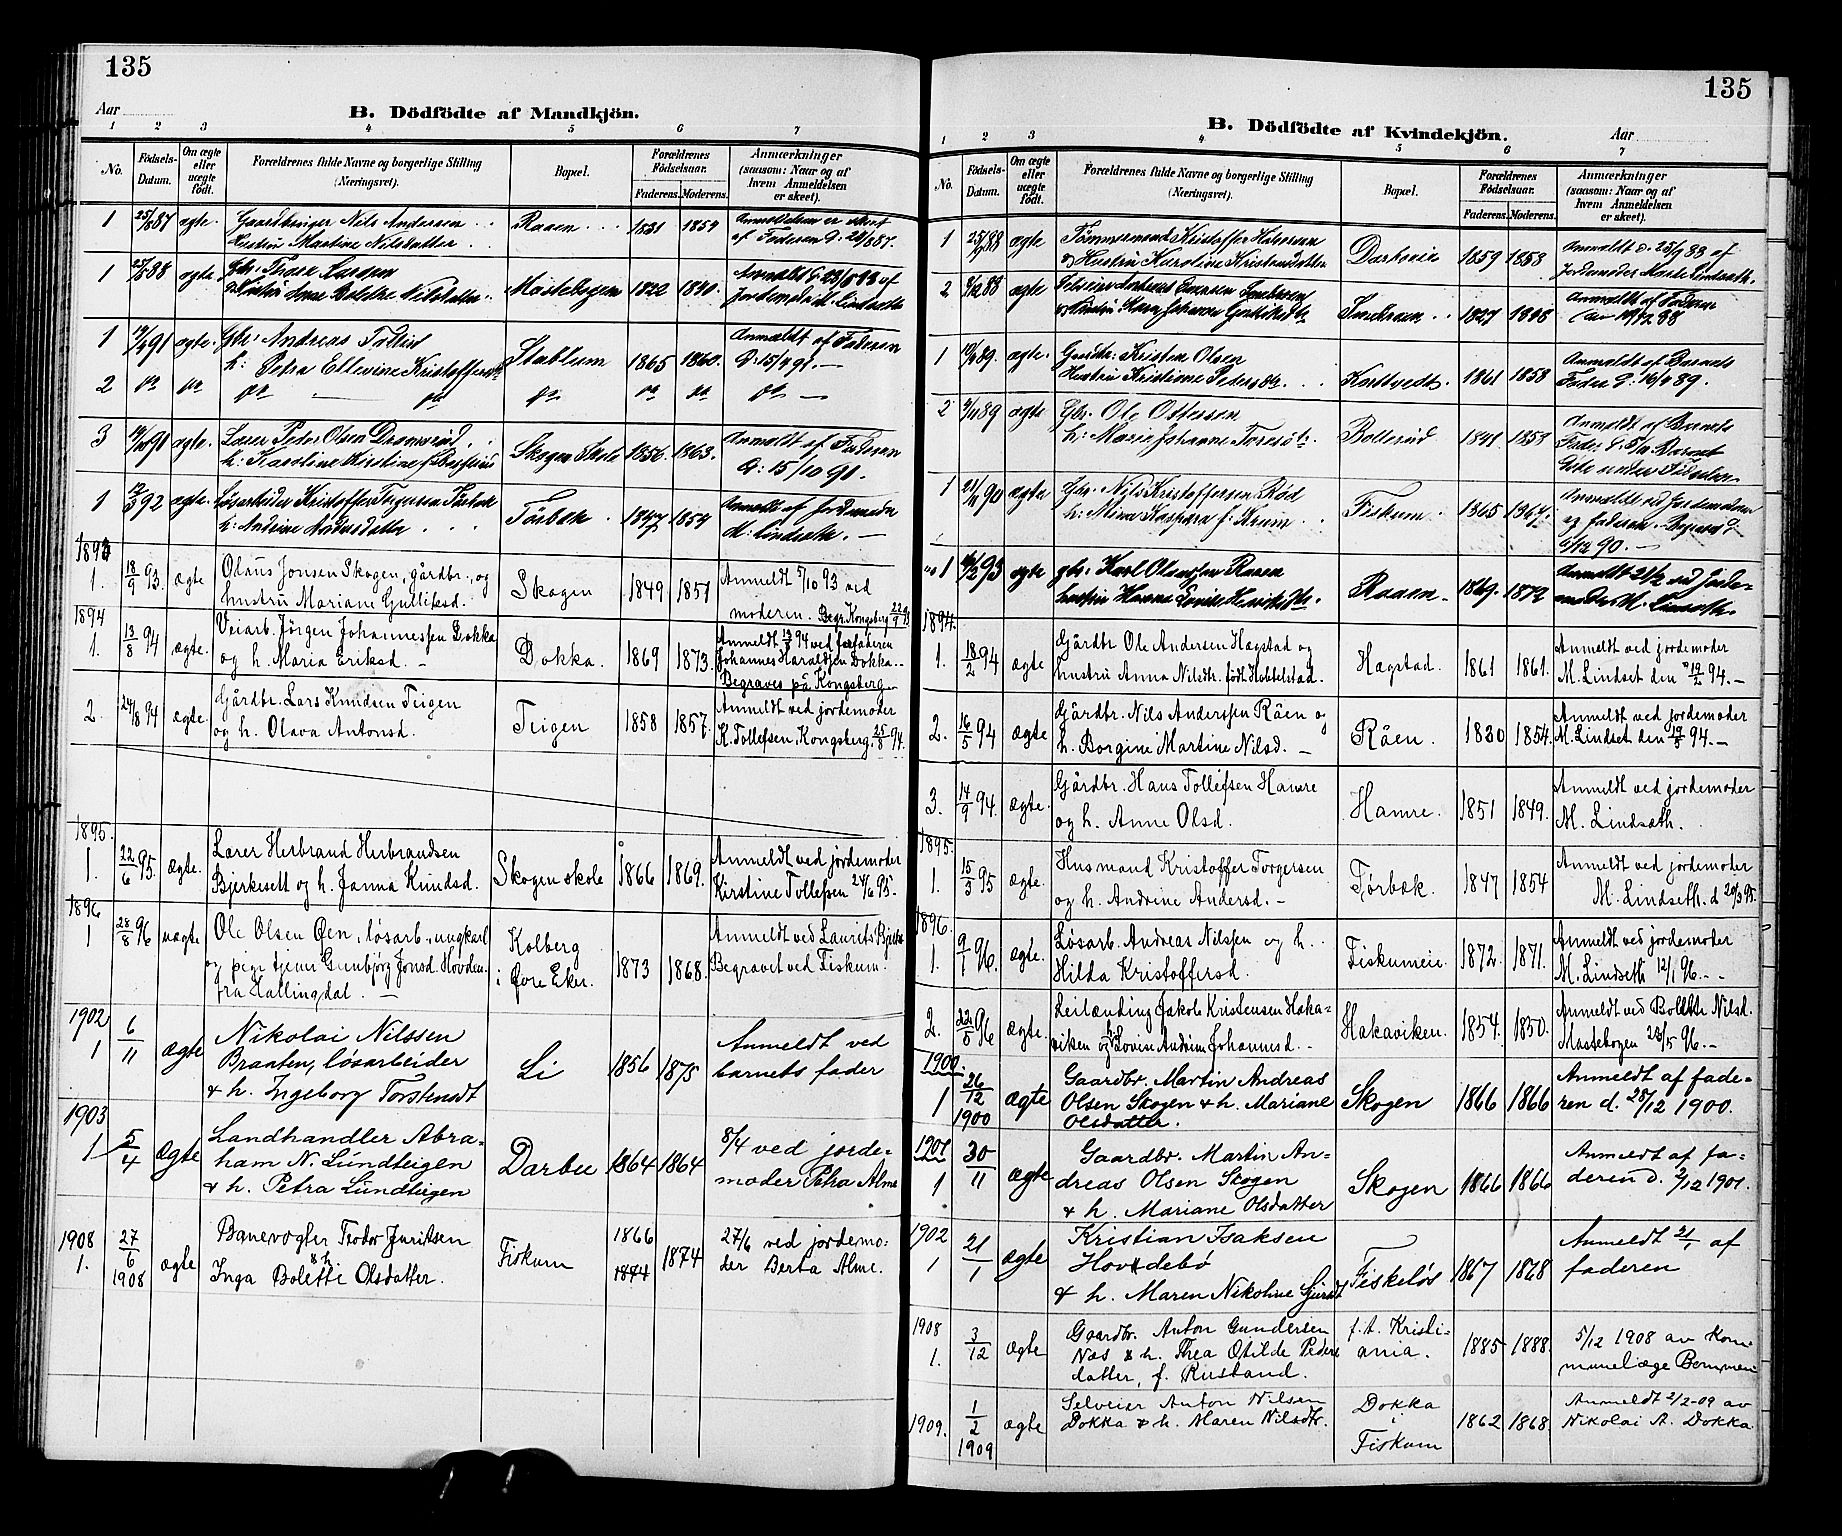 135
Aar
B. Dödfödte af Mandkjön.
1 2 3 4 5 6 7
No. Födsels-Datum. Om ægte eller uægte födt. Forældrenes fulde Navne og borgerlige Stilling (Næringsvei). Bopæl. Forældrenes Födselsaar. Faderens. Moderens. Anmærkninger (saasom: Naar og af hvem Anmeldelsen er skeet).
1 25/ 87 ægte Gaardbruger Nils Andersen Raaen 1831 1859 Anmeldelsen er skeet
Hustru Martine Nilsdatter af Faderen
1 88 ægte Gbr. Larsen Mastebogen 1822 1840 Anmeldt af
Nilsdatter Jordemoder Lindseth
1 91 ægte. Gbr. Andreas Stablum 1865 1860. Anmeldt af Faderen
h: Petra Ellevine Kristoffersdtr D: 15/ 91. —
2 do do do — do do do do do —
3 91 ægte. Lærer Peder Olsen Skogen Skole 1856. 1863. Anmeldt af Faderen
h: Karoline Kirstine f. D: 15/10 91.
1 92 ægte. Løsarbeider Kristoffer Torgersen Tørbæk Tørbæk 1847 1854 Anmeldt af Jordemoder
h: Andrine Andersdatter M: Lindseth. —
1893
1. 18/9 93. ægte Olaus Jonsen Skogen, gårdbr., og Skogen 1849 1851 Anmeldt 5/10 93 ved
hustru Mariane Gulliksd. moderen. Begr. Kongsberg 22/9 93
1894
1. 13/8 94 ægte. Veiarb. Jörgen Johannessen Dokka Dokka. 1869 1873. Anmeldt 13/8 94 ved farfaderen
og h. Maria Eriksd. — Johannes Haraldsen Dokka.
Begraves på Kongsberg
2. 24/8 94 ægte. Gårdbr. Lars Knudsen Teigen Teigen 1858 1857. Anmeldt ved jordemoder
og h. Olava Antonsd. K. Tollefsen, Kongsberg. 25/8 94.
1895.
1. 22/6 95. ægte. Lærer Herbrand Herbrandsen Skogen skole 1866 1869. Anmeldt ved jordemoder
Bjerkesett og h. Janna Knudsd. Kirstine Tollefsen 24/6 95.
1896
1 28/8 96 uægte Ole Olsen Øen, løsarb., ungkarl Kolberg 1873 1868. Anmeldt ved Laurits
og pige tjener Gunbjörg Jonsd. Hovden i Øvre Eker. Begravet ved Fiskum.
fra Hallingdal. —
1902
1 6/11 ægte Nikolai Nilssen Li 1856 1875 Anmeldt ved
Braaten, lösarbeider barnets fader
& h. Ingeborg Torstensdt
1903
1 5/4 Ægte Landhandler Abra- Darbu 1864 1864 8/4 ved jorde-
ham N. Lundteigen moder Petra Alme
& h. Petra Lundteigen
1908 27/6 ægte Banevogter Teodor Fiskum 1866 1874 27/6 ved jordemo-
1. 1908 & h. 1844 der Berta Alme.
Inga Bolette Olsdatter.
135
B. Dödfödte af Kvindekjön.
Aar
1 2 3 4 5 6 7
No. Födsels-Datum. Om ægte eller uægte födt. Forældrenes fulde Navne og borgerlige Stilling (Næringsvei). Bopæl. Forældrenes Födselsaar. Faderens. Moderens. Anmærkninger (saasom: Naar og af hvem Anmeldelsen er skeet).
1 88 ægte Tömmermand Kristoffer Halvorsen 1859 1858 Anmeldt d. 25/9 88 af
og Hustru Karoline Kristensdatter Jordemoder Lindseth.
2 88 ægte 1827 1848 Anmeldt af Faderen
88
1 89. ægte. Gaardbr: Kristen Olsen Kortvedt 1861 1858 Anmeldt af Barnets
Hustru Kristiane Pedersdtr. Fader D. 16/ 89.
2 89 ægte Gbr. Ole Ottersen Bollerud 1841 1853 Anmeldt af Barnets
h: Marie Johanne Fader d. 5/11 Barnet
1 90 ægte Gbr. Nils Kristoffersen Rød Fiskum 1865 1867. Anmeldt ved Jordemoderen
h. Mina Kaspara f: Krum og faderen
90. —
1 93 ægte gbr: Karl Olaussen Raaen Raaen 1869. 1872 Anmeldt 21/2 ved Jorde-
hustru Hanna Lovise moder M. Lindseth.
1894.
1. 18/2 94 ægte Gårdbr Ole Andersen Hagstad og Hagstad. 1861 1861. Anmeldt ved jordemoder
hustru Anna Nilsdtr. födt Hobbelstad. M. Lindset den 19/2 94. —
2. 16/5 94 ægte Gårdbr. Nils Anderssen Råen og Råen. 1830 1854. Anmeldt ved jordemoder
h. Borgine Martine Nilsd. — M. Lindset den 19/5 94. —
3. 14/9 94. ægte. Gårdbr. Hans Tollefsen Hamre Hamre. 1851 1849. Anmeldt ved jordemoder
og h. Anne Olsd. M. Lindseth.
1895.
1. 15/3 95 ægte. Husmand Kristoffer Torgersen Tørbæk. 1847 1854 Anmeldt ved jordemoder
og h. Andrine Andersd. — M. Lindseth. d 20/3 95.
1896.
1. 9/1 96. ægte. Løsarb. Andreas Nilssen og h. Fiskumeie. 1872. 1871. Anmeldt ved jordemoder
Hilda Kristoffersd. M. Lindseth 12/1 96. -
2. 22/5 96 ægte. Leilænding Jakob Kristensen Haka- Hakaviken. 1854. 1850. Anmeldt ved Bolette Nilsd.
viken og h. Lovise Andrine Johannesd. — Mastebogen 23/5 96. —
1900.
1 26/12 1900 ægte Gaardbr. Martin Andreas Skogen 1866 1866 Anmeldt af fade-
Olsen Skogen & h. Mariane ren d. 28/12 1900.
Olsdatter.
1901
1 30/11 ægte Gaardbr. Martin An- Skogen 1866 1866 Anmeldt af fa-
dreas Olsen Skogen deren d. 2/12 1901.
& h. Mariane Olsdatter
1902
1 21/1 ægte Kristian Isaksen Fiskelös 1867 1868 Anmeldt 21/1 af
Hovdebö faderen
& h. Maren Nikoline
1908
1. 3/12 ægte Gaardbr. Anton Gundersen f.t. Kristi- 1885 1888. 5/12 1908 av kom
Næs & h. Thea Otilde Peders ania. munelæge Bommen
datter, f. Rustand.
1909. 1/2 1909 ægte Selveier Anton Nilsen Dokka 1862 1868. Anmeldt 2/2-09 av
Dokka & h. Maren Nilsdtr. i Nikolai A. Dokka
Fiskum